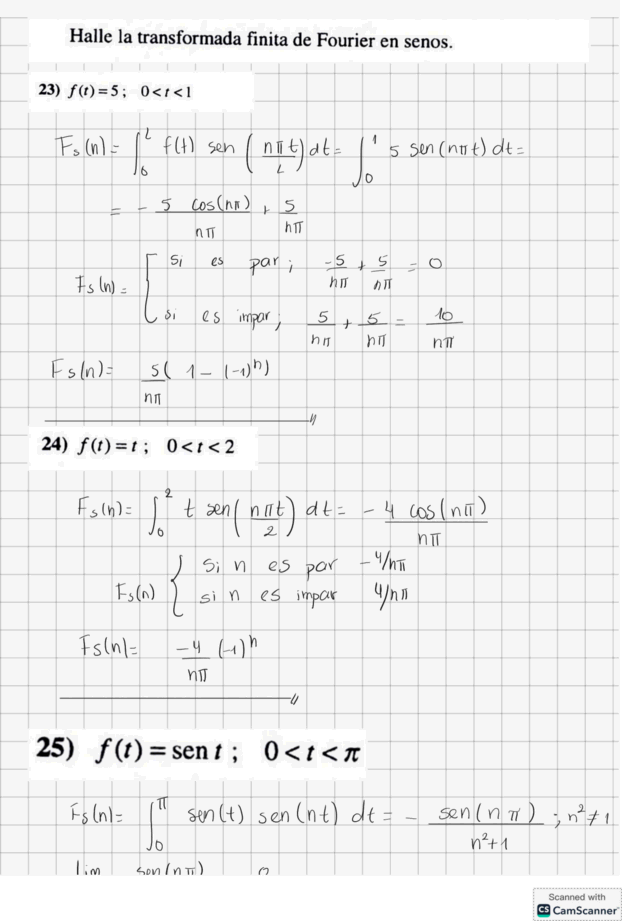 Halle la transformada finita de Fourier en senos.
23) f(t) = 5 ; 0 < t < 1
Fs(n) = ∫₀ᴸ f(t) sen (nπt/L) dt = ∫₀¹ 5 sen(nπt) dt =
= - 5 cos(nπ)/nπ + 5/nπ
Fs(n) = { si es par; -5/nπ + 5/nπ = 0
si es impar; 5/nπ + 5/nπ = 10/nπ
Fs(n) = 5/nπ ( 1 - (-1)ⁿ)
24) f(t) = t ; 0 < t < 2
Fs(n) = ∫₀² t sen(nπt/2) dt = - 4 cos(nπ)/nπ
Fs(n) { si n es par -4/nπ
si n es impar 4/nπ
Fs(n) = -4/nπ (-1)ⁿ
25) f(t) = sen t ; 0 < t < π
Fs(n) = ∫₀^π sen(t) sen(nt) dt = - sen(nπ)/n²+1 ; n² ≠ 1
lim sen(nπ) 0
Scanned with
CS CamScanner